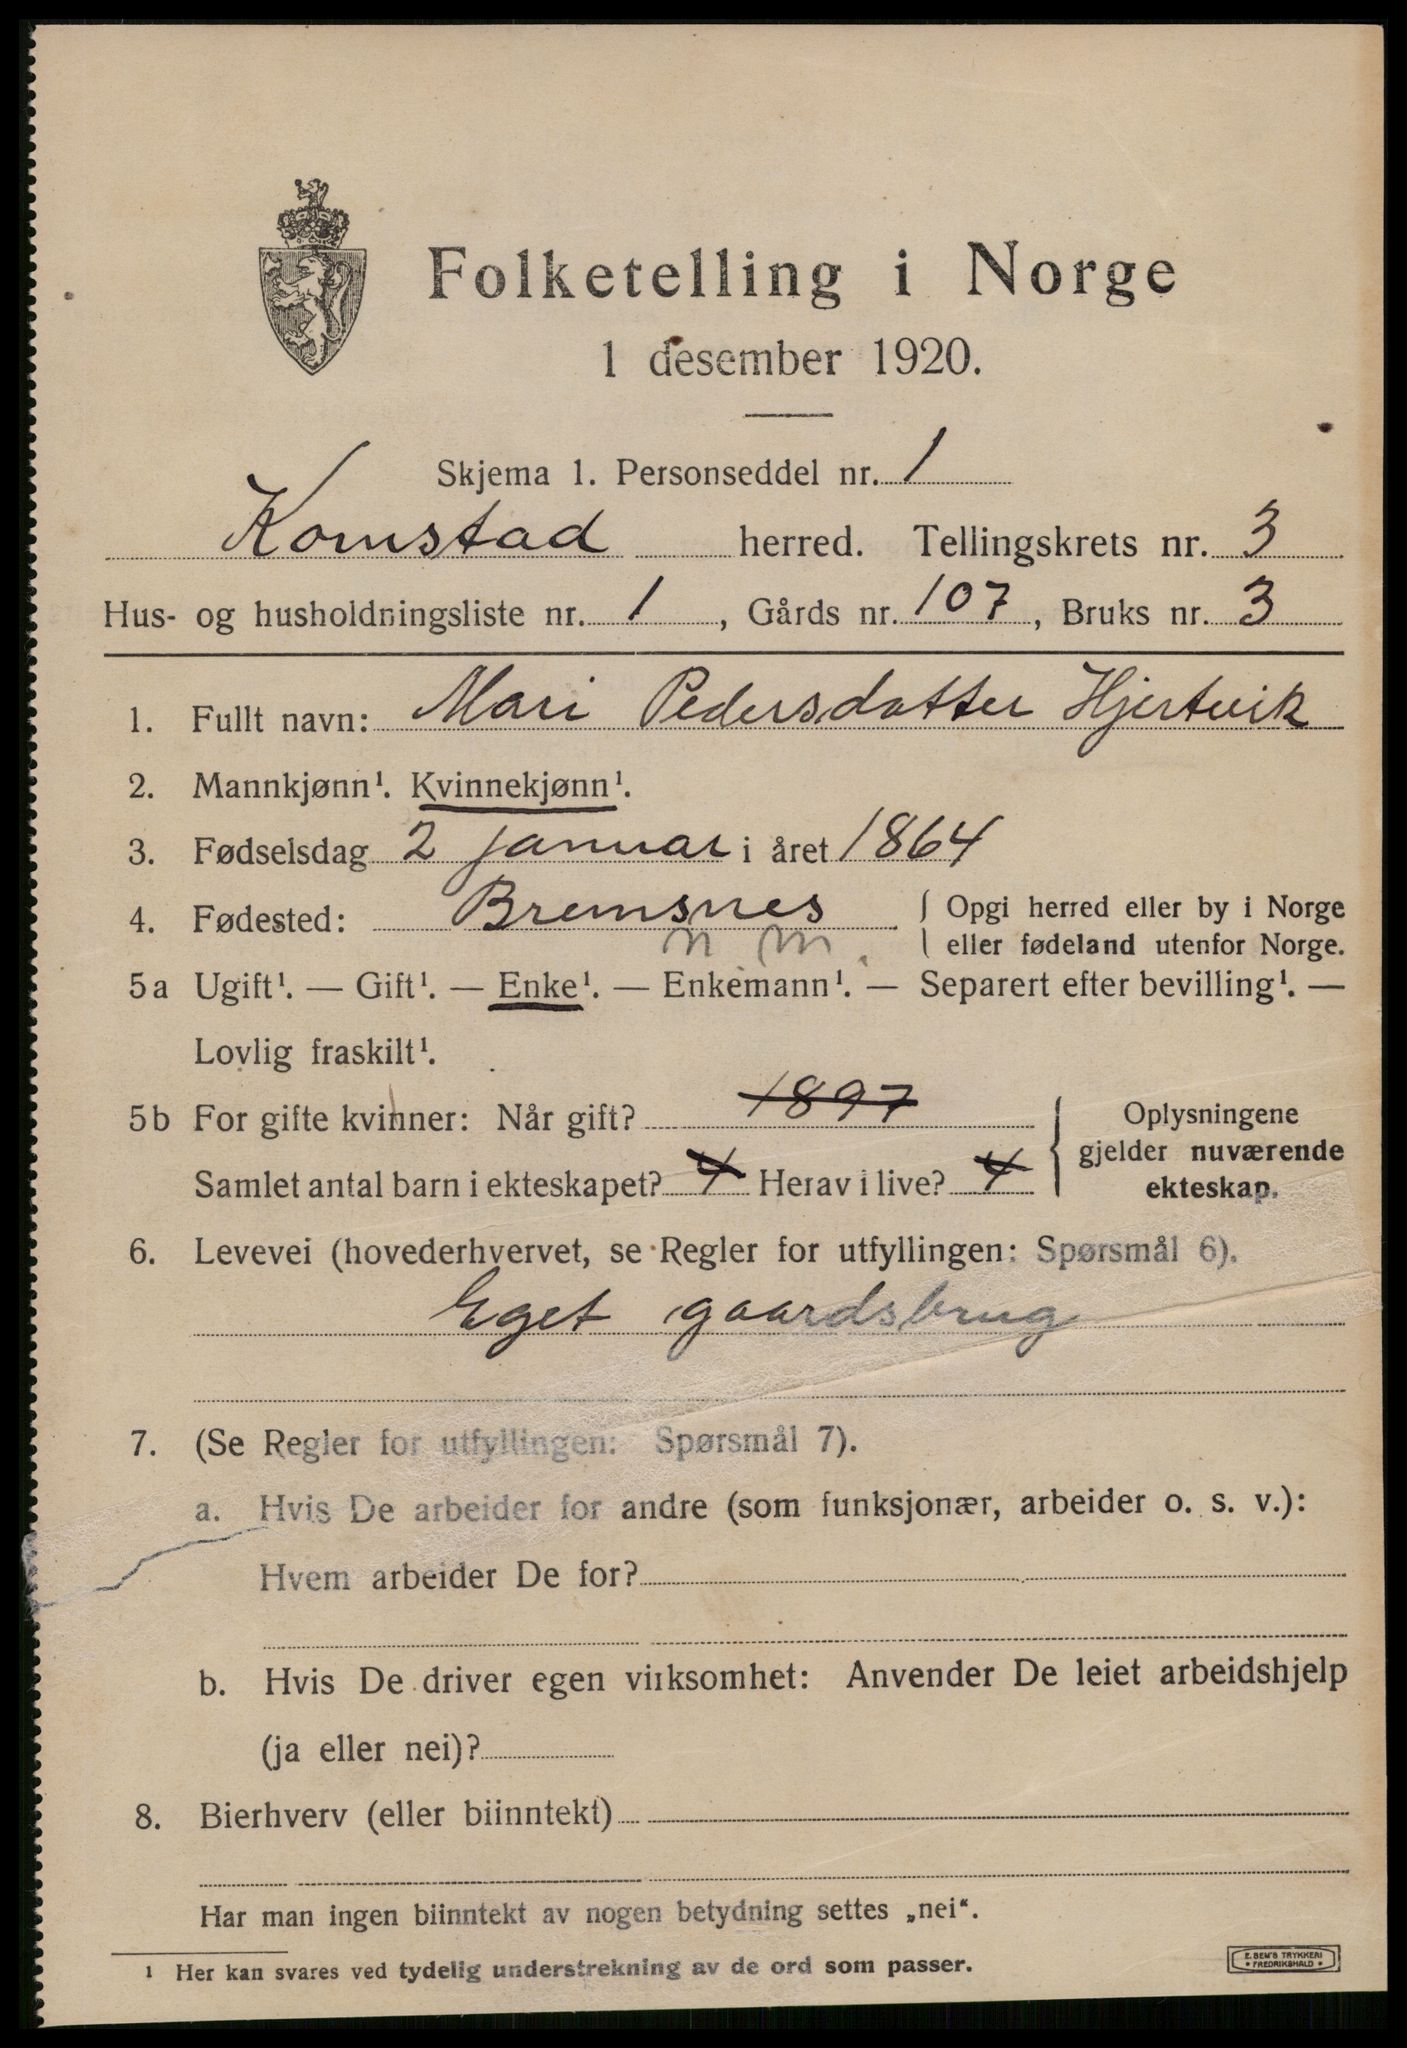 Folketelling i Norge
1 desember 1920.
Skjema 1. Personseddel nr. 1
Kornstad herred. Tellingskrets nr. 3
Hus- og husholdningsliste nr. 1, Gårds nr. 107, Bruks nr. 3
1. Fullt navn: Mari Pedersdatter Hjertvik
2. Mannkjønn¹. Kvinnekjønn¹.
3. Fødselsdag 2 januar i året 1864
4. Fødested: Bremsnes { Opgi herred eller by i Norge
eller fødeland utenfor Norge.
n m.
5a Ugift¹. — Gift¹. — Enke¹. — Enkemann¹. — Separert efter bevilling¹. —
Lovlig fraskilt¹.
5b For gifte kvinner: Når gift? 1897
Samlet antal barn i ekteskapet? 4 Herav i live? 4
Oplysningene
gjelder nuværende
ekteskap.
6. Levevei (hovederhvervet, se Regler for utfyllingen: Spørsmål 6).
Eget gaardsbrug
7. (Se Regler for utfyllingen: Spørsmål 7).
a. Hvis De arbeider for andre (som funksjonær, arbeider o. s. v.):
Hvem arbeider De for?
b. Hvis De driver egen virksomhet: Anvender De leiet arbeidshjelp
(ja eller nei)?
8. Bierhverv (eller biinntekt)
Har man ingen biinntekt av nogen betydning settes „nei“.
¹ Her kan svares ved tydelig understrekning av de ord som passer.
E. SEM'S TRYKKERI
• FREDRIKSHALD •